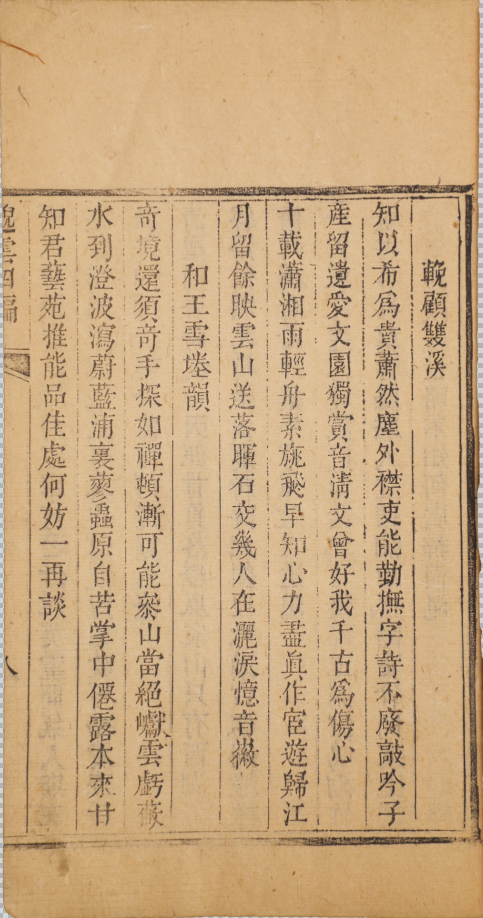 輓顧雙溪
知以希為貴蕭然塵外襟吏能勤撫字詩不廢敲吟子
産留遺愛文園獨賞音清文曾好我千古為傷心
十載瀟湘雨輕舟素旐飛早知心力盡眞作宦遊歸江
月留餘映雲山送落暉石交幾人在灑淚憶音徽
和王雪堘韻
奇境還須奇手探如禪頓漸可能叅山當絕巘雲虧蔽
水到澄波瀉蔚藍浦裏蓼蟲原自苦掌中僊露本來甘
知君藝苑推能品佳處何妨一再談
雲四編
八